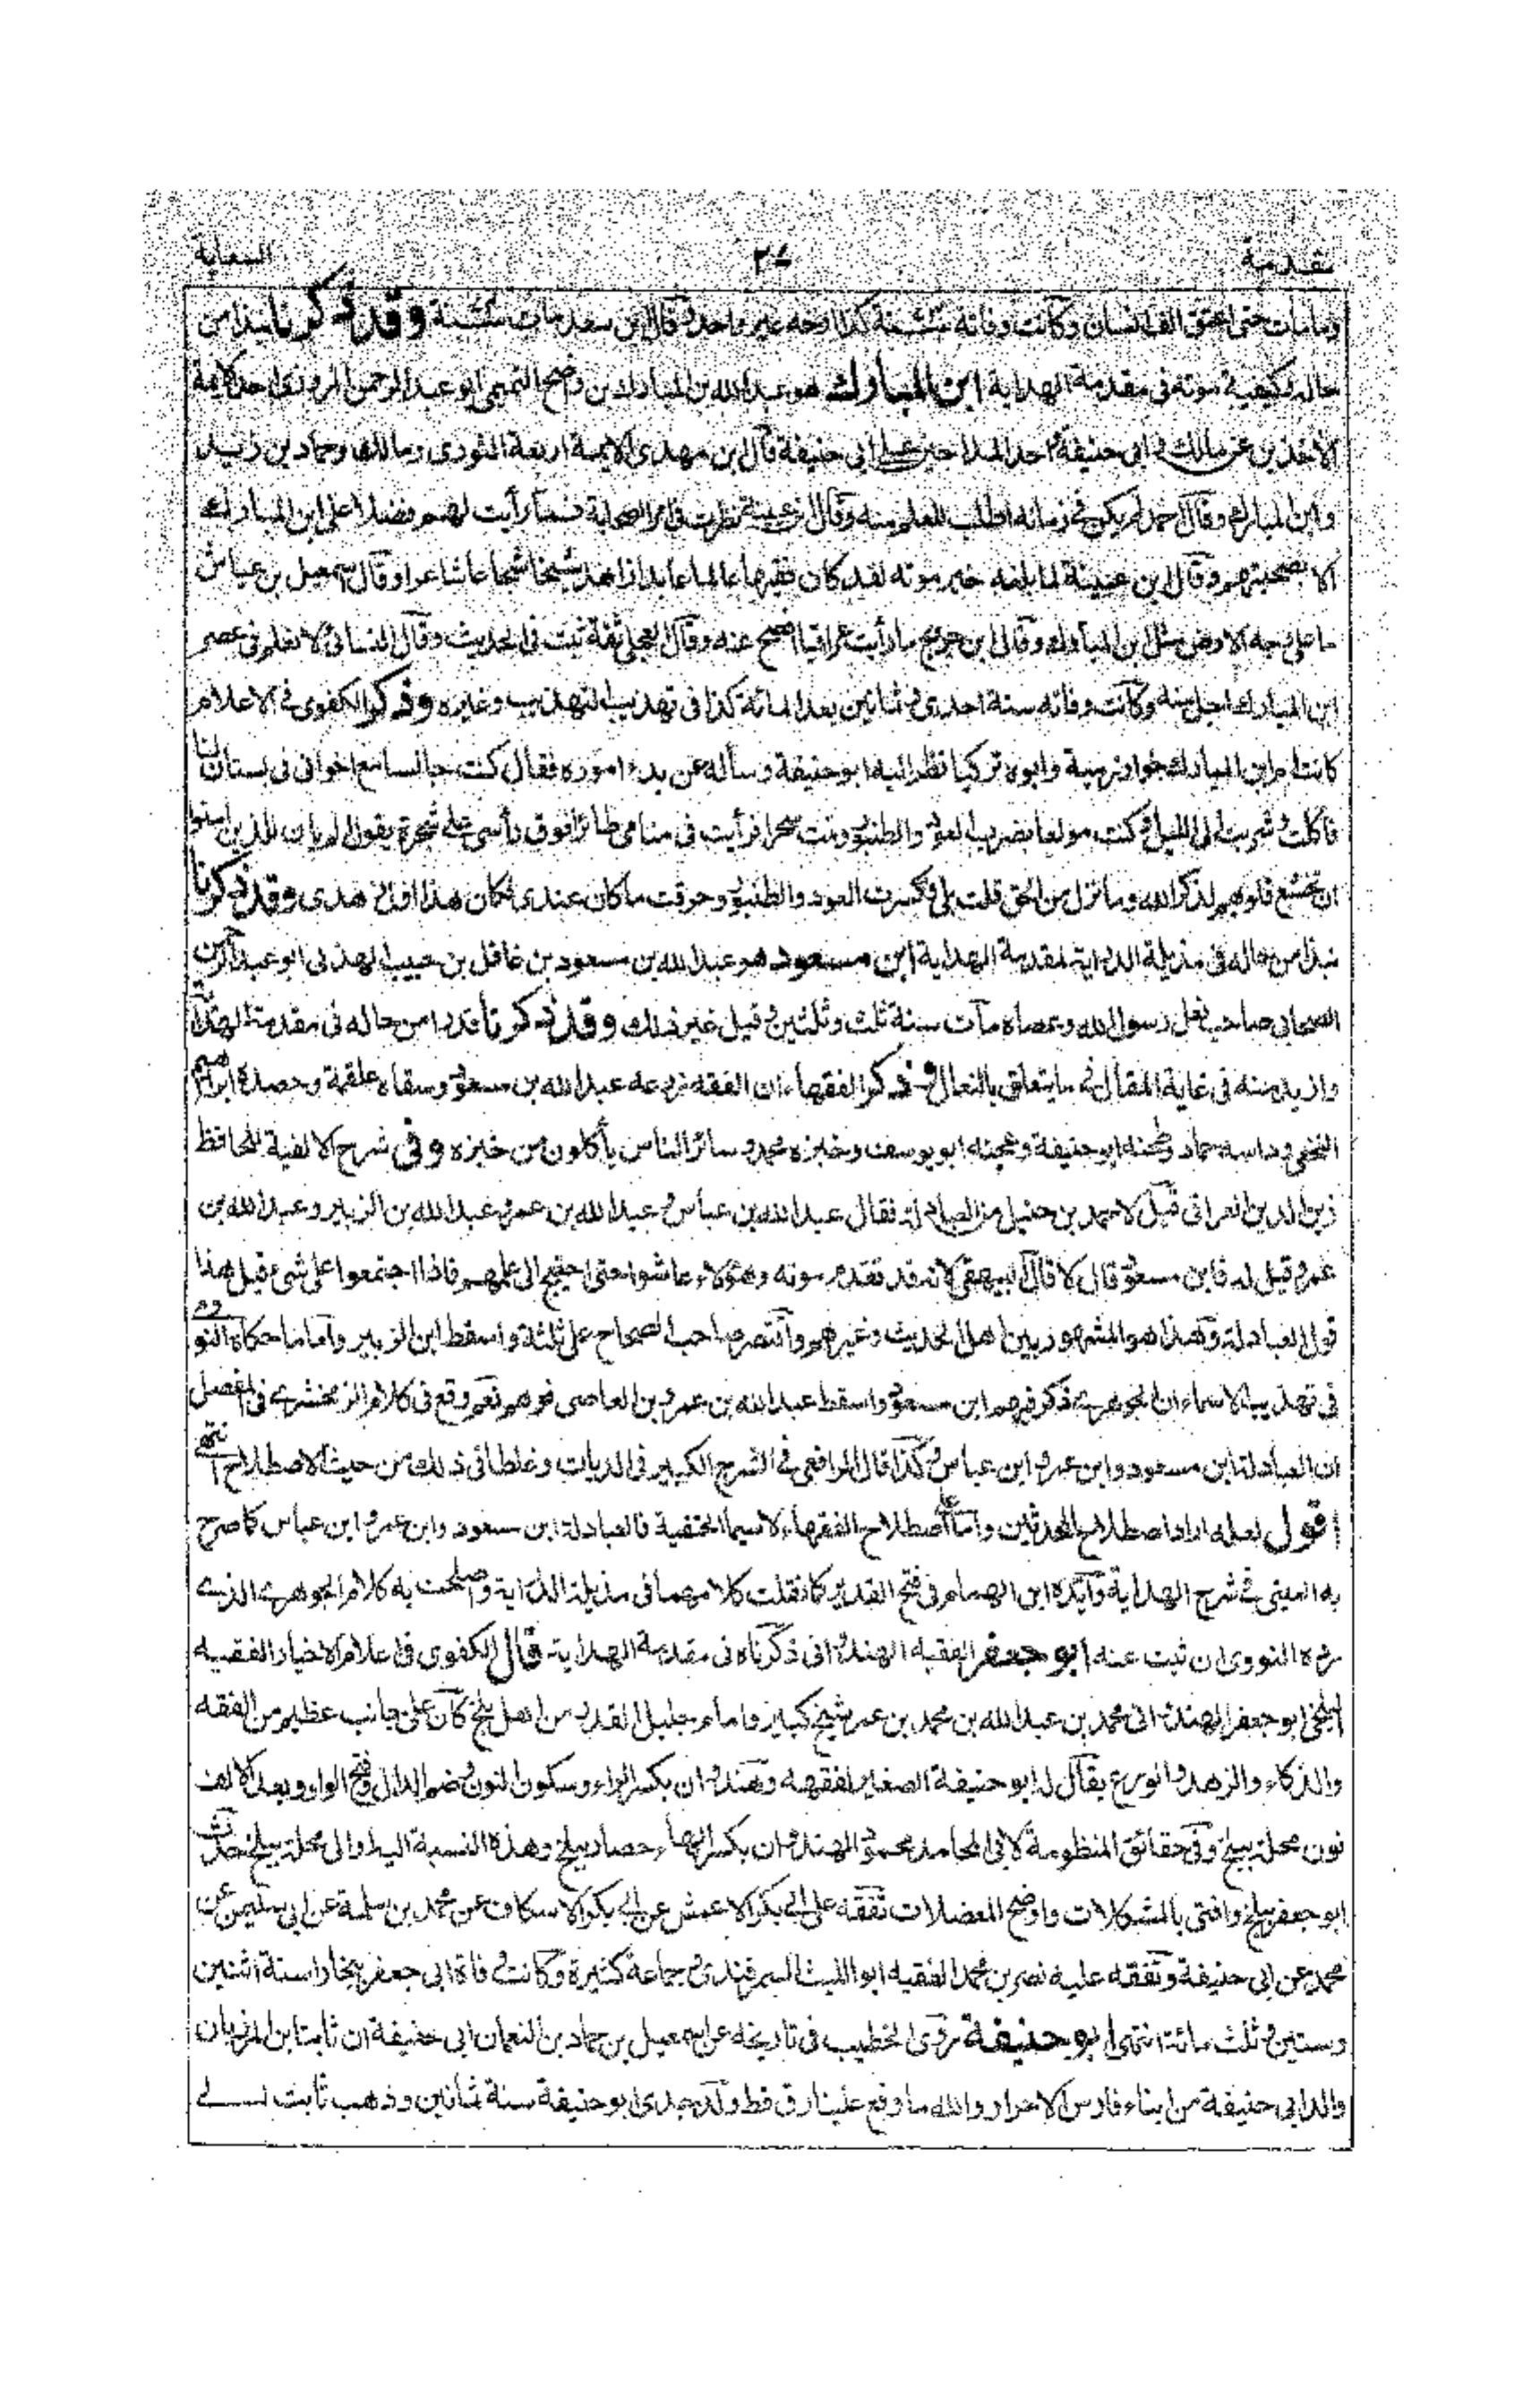 مقدمة ٢٧ السعاية
وما مات حتى اعتق الف انسان وكانت وفاته سنة كذا ارخه غير واحد وقال ابن سعد مات سنة وقد ذكرنا نبذا من
حاله وكيفية موته فى مقدمة الهداية ابن المبارك هو عبد الله بن المبارك بن واضح التميمى ابو عبد الرحمن المروزى احد الائمة
الآخذين عن مالك وابى حنيفة احد قال ابن مهدى الايمة اربعة الثورى ومالك وحماد بن زيد
وابن المبارك وقال احمد لم يكن فى زمانه اطلب للعلم منه وقال ابن عيينة نظرت فى امر الصحابة فما رأيت لهم فضلا على ابن المبارك
الا بصحبتهم وقال ابن عيينة لما بلغه خبر موته لقد كان فقيها عالما عابدا زاهدا شيخا شجاعا شاعرا وقال اسمعيل بن عياش
ما على وجه الارض مثل ابن المبارك وقال ابن جريج ما رأيت عراقيا افصح عنه وقال العجلى ثقة ثبت فى الحديث وقال النسائى لا نعلم فى عصر
ابن المبارك اجل منه وكانت وفاته سنة احدى وثمانين بعد المائة كذا فى تهذيب التهذيب وغيره وذكر الكفوى فى الاعلام
كانت ام ابن المبارك خوارزمية وابوه تركيا نظر اليه ابو حنيفة وسأله عن بدء اموره فقال كنت جالسا مع اخوانى فى بستان لنا
فاكلت وشربت الى الليل وكنت مولعا بضرب العود والطنبور ونمت سحرا فرأيت فى منامى طائرا فوق رأسى على شجرة يقول الم يان للذين امنوا
ان تخشع قلوبهم لذكر الله وما نزل من الحق قلت بلى وكسرت العود والطنبور وحرقت ما كان عندى فكان هذا اول زهدى وقد ذكرنا
نبذا من حاله فى مذيلة الدراية لمقدمة الهداية ابن مسعود هو عبد الله بن مسعود بن غافل بن حبيب الهذلى ابو عبد الرحمن
الصحابى صاحب نعل رسول الله وعصاه مات سنة ثلث وثلثين وقيل غير ذلك وقد ذكرنا قدرا من حاله فى مقدمة الهداية
وازيد منه فى غاية المقال فيما يتعلق بالنعال وذكر الفقهاء ان الفقه زرعه عبد الله بن مسعود وسقاه علقمة وحصده ابراهيم
النخعى وداسه حماد وطحنه ابو حنيفة وعجنه ابو يوسف وخبزه محمد وسائر الناس يأكلون من خبزه وفى شرح الالفية للحافظ
زين الدين العراقى قيل لاحمد بن حنبل من العبادلة فقال عبد الله بن عباس وعبد الله بن عمر وعبد الله بن الزبير وعبد الله بن
عمرو قيل له فابن مسعود قال لا قال البيهقى لانه قد تقدم موته وهؤلاء عاشوا حتى احتيج الى علمهم فاذا اجتمعوا على شىء قيل هذا
قول العبادلة وهذا هو المشهور بين اهل الحديث وغيرهم واقتصر صاحب الصحاح على ثلثة واسقط ابن الزبير واما ما حكاه النووى
فى تهذيب الاسماء ان الجوهرى ذكر فيهم ابن مسعود واسقط عبد الله بن عمرو بن العاصى فوهم نعم وقع فى كلام الزمخشرى فى المفصل
ان العبادلة ابن مسعود وابن عمر وابن عباس وكذا قال الرافعى فى الشرح الكبير فى الديات وغلطا فى ذلك من حيث الاصطلاح انتهى
اقول لعله اراد اصطلاح المحدثين واما اصطلاح الفقهاء لا سيما الحنفية فالعبادلة ابن مسعود وابن عمر وابن عباس كما صرح
به العينى فى شرح الهداية وايده ابن الهمام فى فتح القدير كما نقلت كلامهما فى مذيلة الدراية واصلحت به كلام الجوهرى الذى
رده النووى ان ثبت عنه ابو جعفر الفقيه الهندوانى ذكرناه فى مقدمة الهداية قال الكفوى فى اعلام الاخيار الفقيه
البلخى ابو جعفر الهندوانى محمد بن عبد الله بن محمد بن عمر شيخ كبير وامام جليل القدر من اهل بلخ كان على جانب عظيم من الفقه
والذكاء والزهد والورع يقال له ابو حنيفة الصغير لفقهه وهندوان بكسر الهاء وسكون النون وضم الدال وفتح الواو وبعد الالف
نون محلة ببلخ وفى حقائق المنظومة لابى المحامد محمود الهندوان بكسر الهاء حصار ببلخ وهذه النسبة اليه او الى محلة ببلخ حدث
ابو جعفر ببلخ وافتى بالمشكلات واوضح المعضلات تفقه على ابى بكر الاعمش عن ابى بكر الاسكاف عن محمد بن سلمة عن ابى سليمن عن
محمد عن ابى حنيفة وتفقه عليه نصر بن محمد الفقيه ابو الليث السمرقندى وجماعة كثيرة وكانت وفاة ابى جعفر ببخارا سنة اثنين
وستين وثلث مائة انتهى ابو حنيفة روى الخطيب فى تاريخه عن اسمعيل بن حماد بن النعمان ابى حنيفة ان ثابتا بن المرزبان
والد ابى حنيفة من ابناء فارس الاحرار والله ما وقع علينا رق قط ولد جدى ابو حنيفة سنة ثمانين وذهب ثابت الى